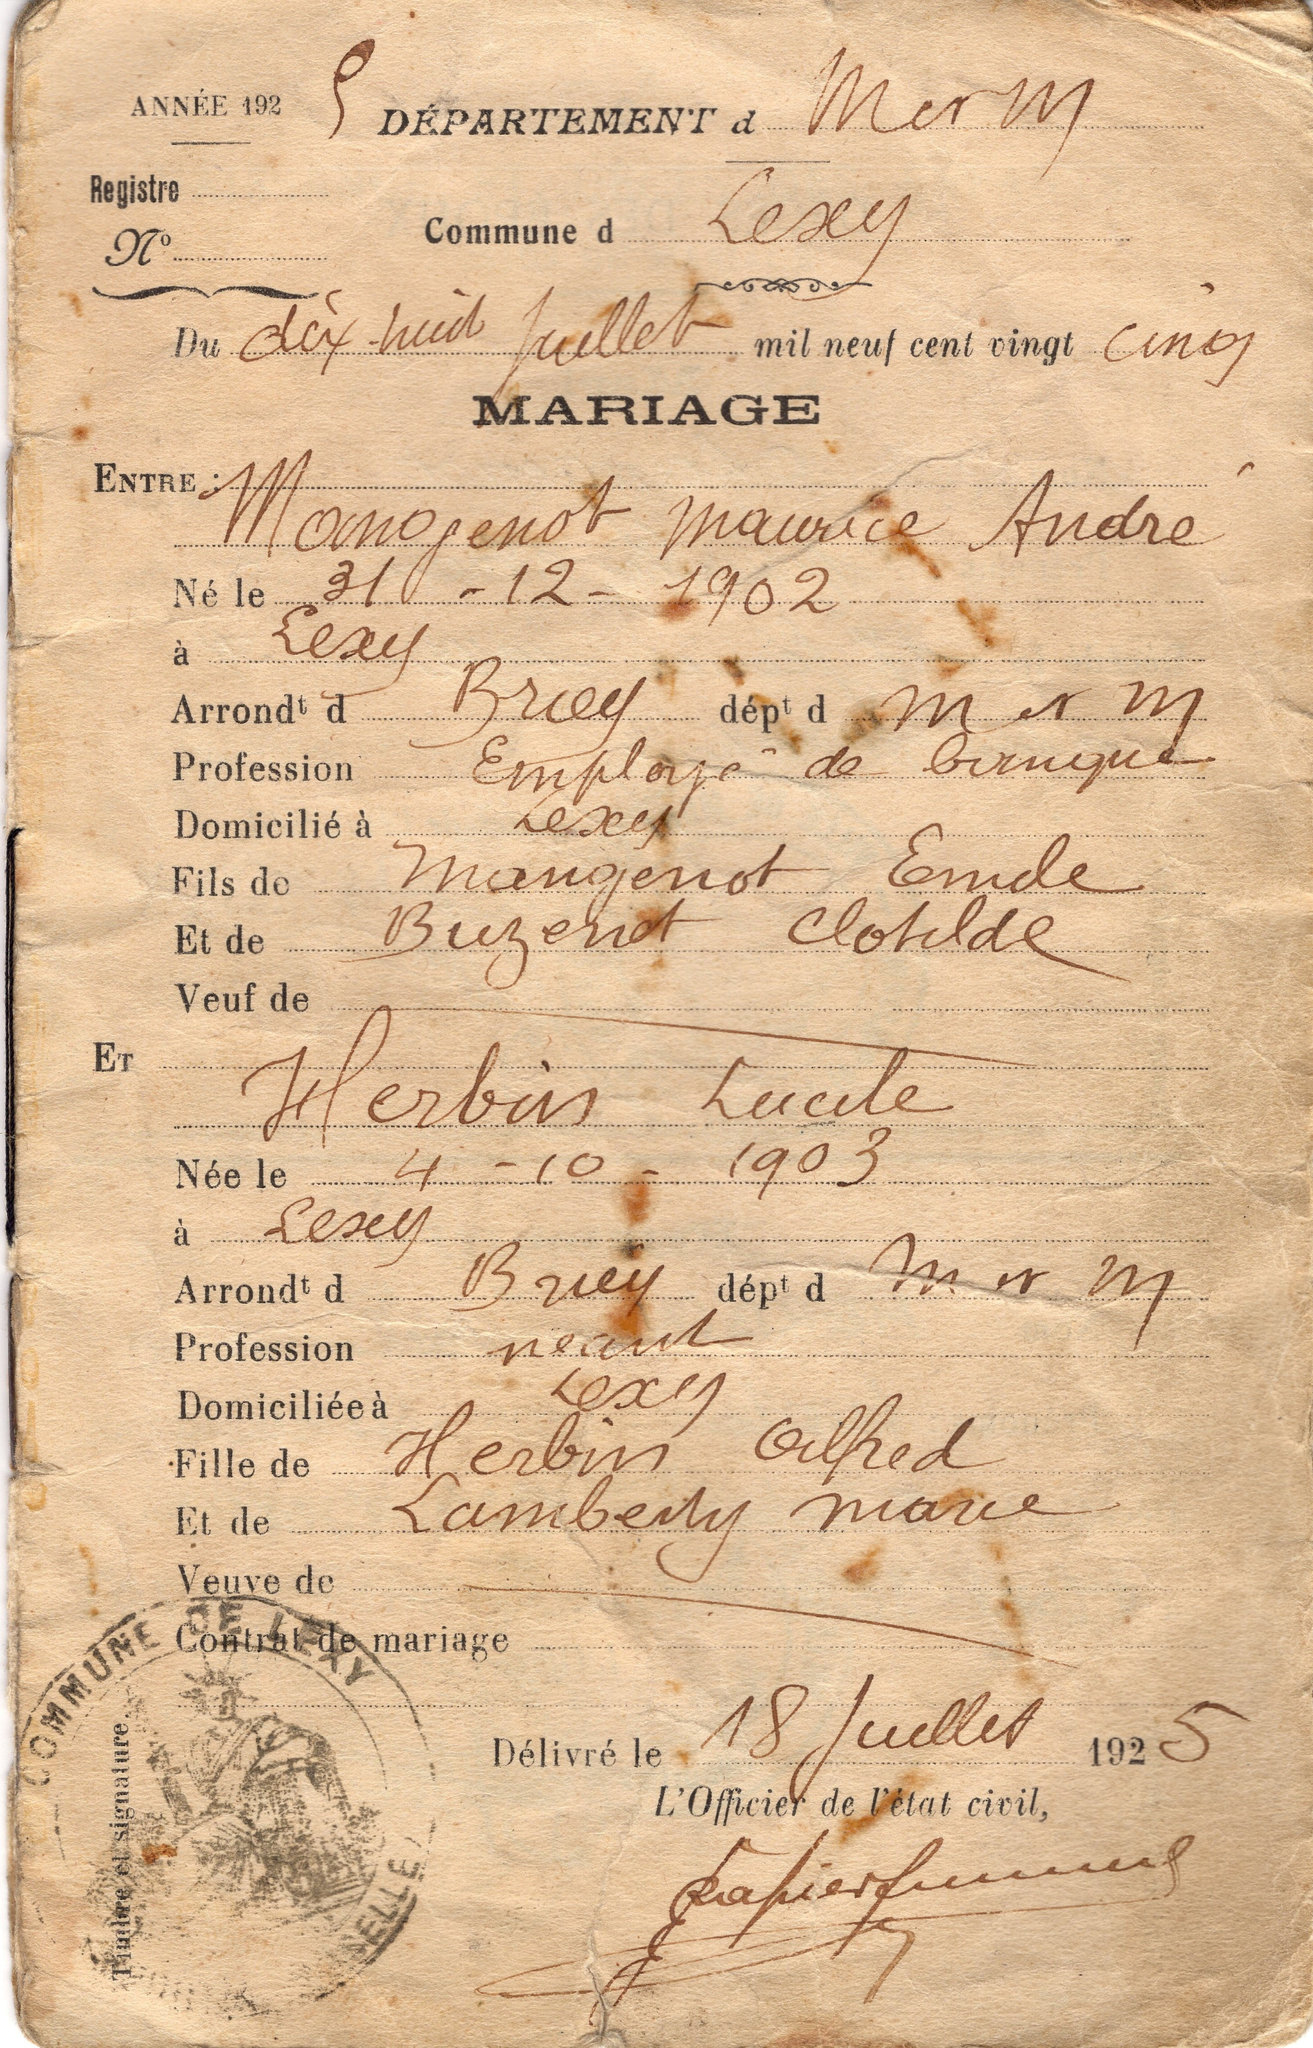 ANNÉE 192 5 DÉPARTEMENT d M et M
Registre
Nº
Commune d Lexy
Du dix-huit Juillet mil neuf cent vingt cinq
MARIAGE
ENTRE :
Mangenot Maurice André
Né le 31 - 12 - 1902
à Lexy
Arrondt d Briey dépt d M et M
Profession Employé de banque
Domicilié à Lexy
Fils de Mangenot Emile
Et de Buzenet Clotilde
Veuf de
ET
Herbin Lucile
Née le 4 - 10 - 1903
à Lexy
Arrondt d Briey dépt d M et M
Profession néant
Domiciliée à Lexy
Fille de Herbin Alfred
Et de Lamberty Marie
Veuve de
Contrat de mariage
COMMUNE DE LEXY
SELLE
Timbre et signature
Délivré le 18 Juillet 192 5
L'Officier de l'état civil,